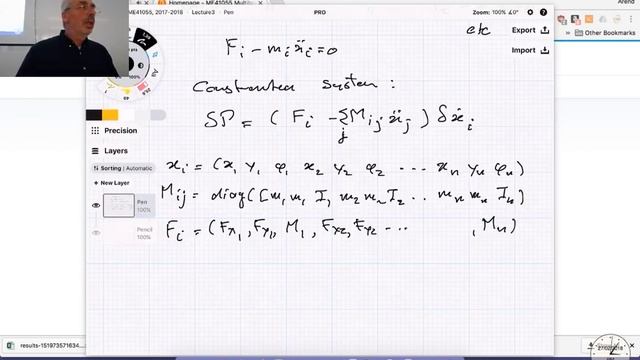 Homepage - ME41055 Multib
Arend
ME41055, 2017-2018 Lecture3 > Pen
PRO
Zoom: 100% ∠0°
Export
Import
Other Bookmarks
etc
F_i - m_i ẍ_i = 0
Constrained system :
δP = ( F_i - Σ_j M_ij ẍ_j ) δẋ_i
x_i = (x_1 y_1 φ_1 x_2 y_2 φ_2 ... x_n y_n φ_n)
M_ij = diag([m_1 m_1 I_1 m_2 m_2 I_2 .. m_n m_n I_n)
F_i = (F_x1, F_y1, M_1, F_x2, F_y2 ... , M_n)
Precision
Layers
Sorting | Automatic
+ New Layer
Pen
100%
Pencil
100%
results-151973571634....
27/02/2018